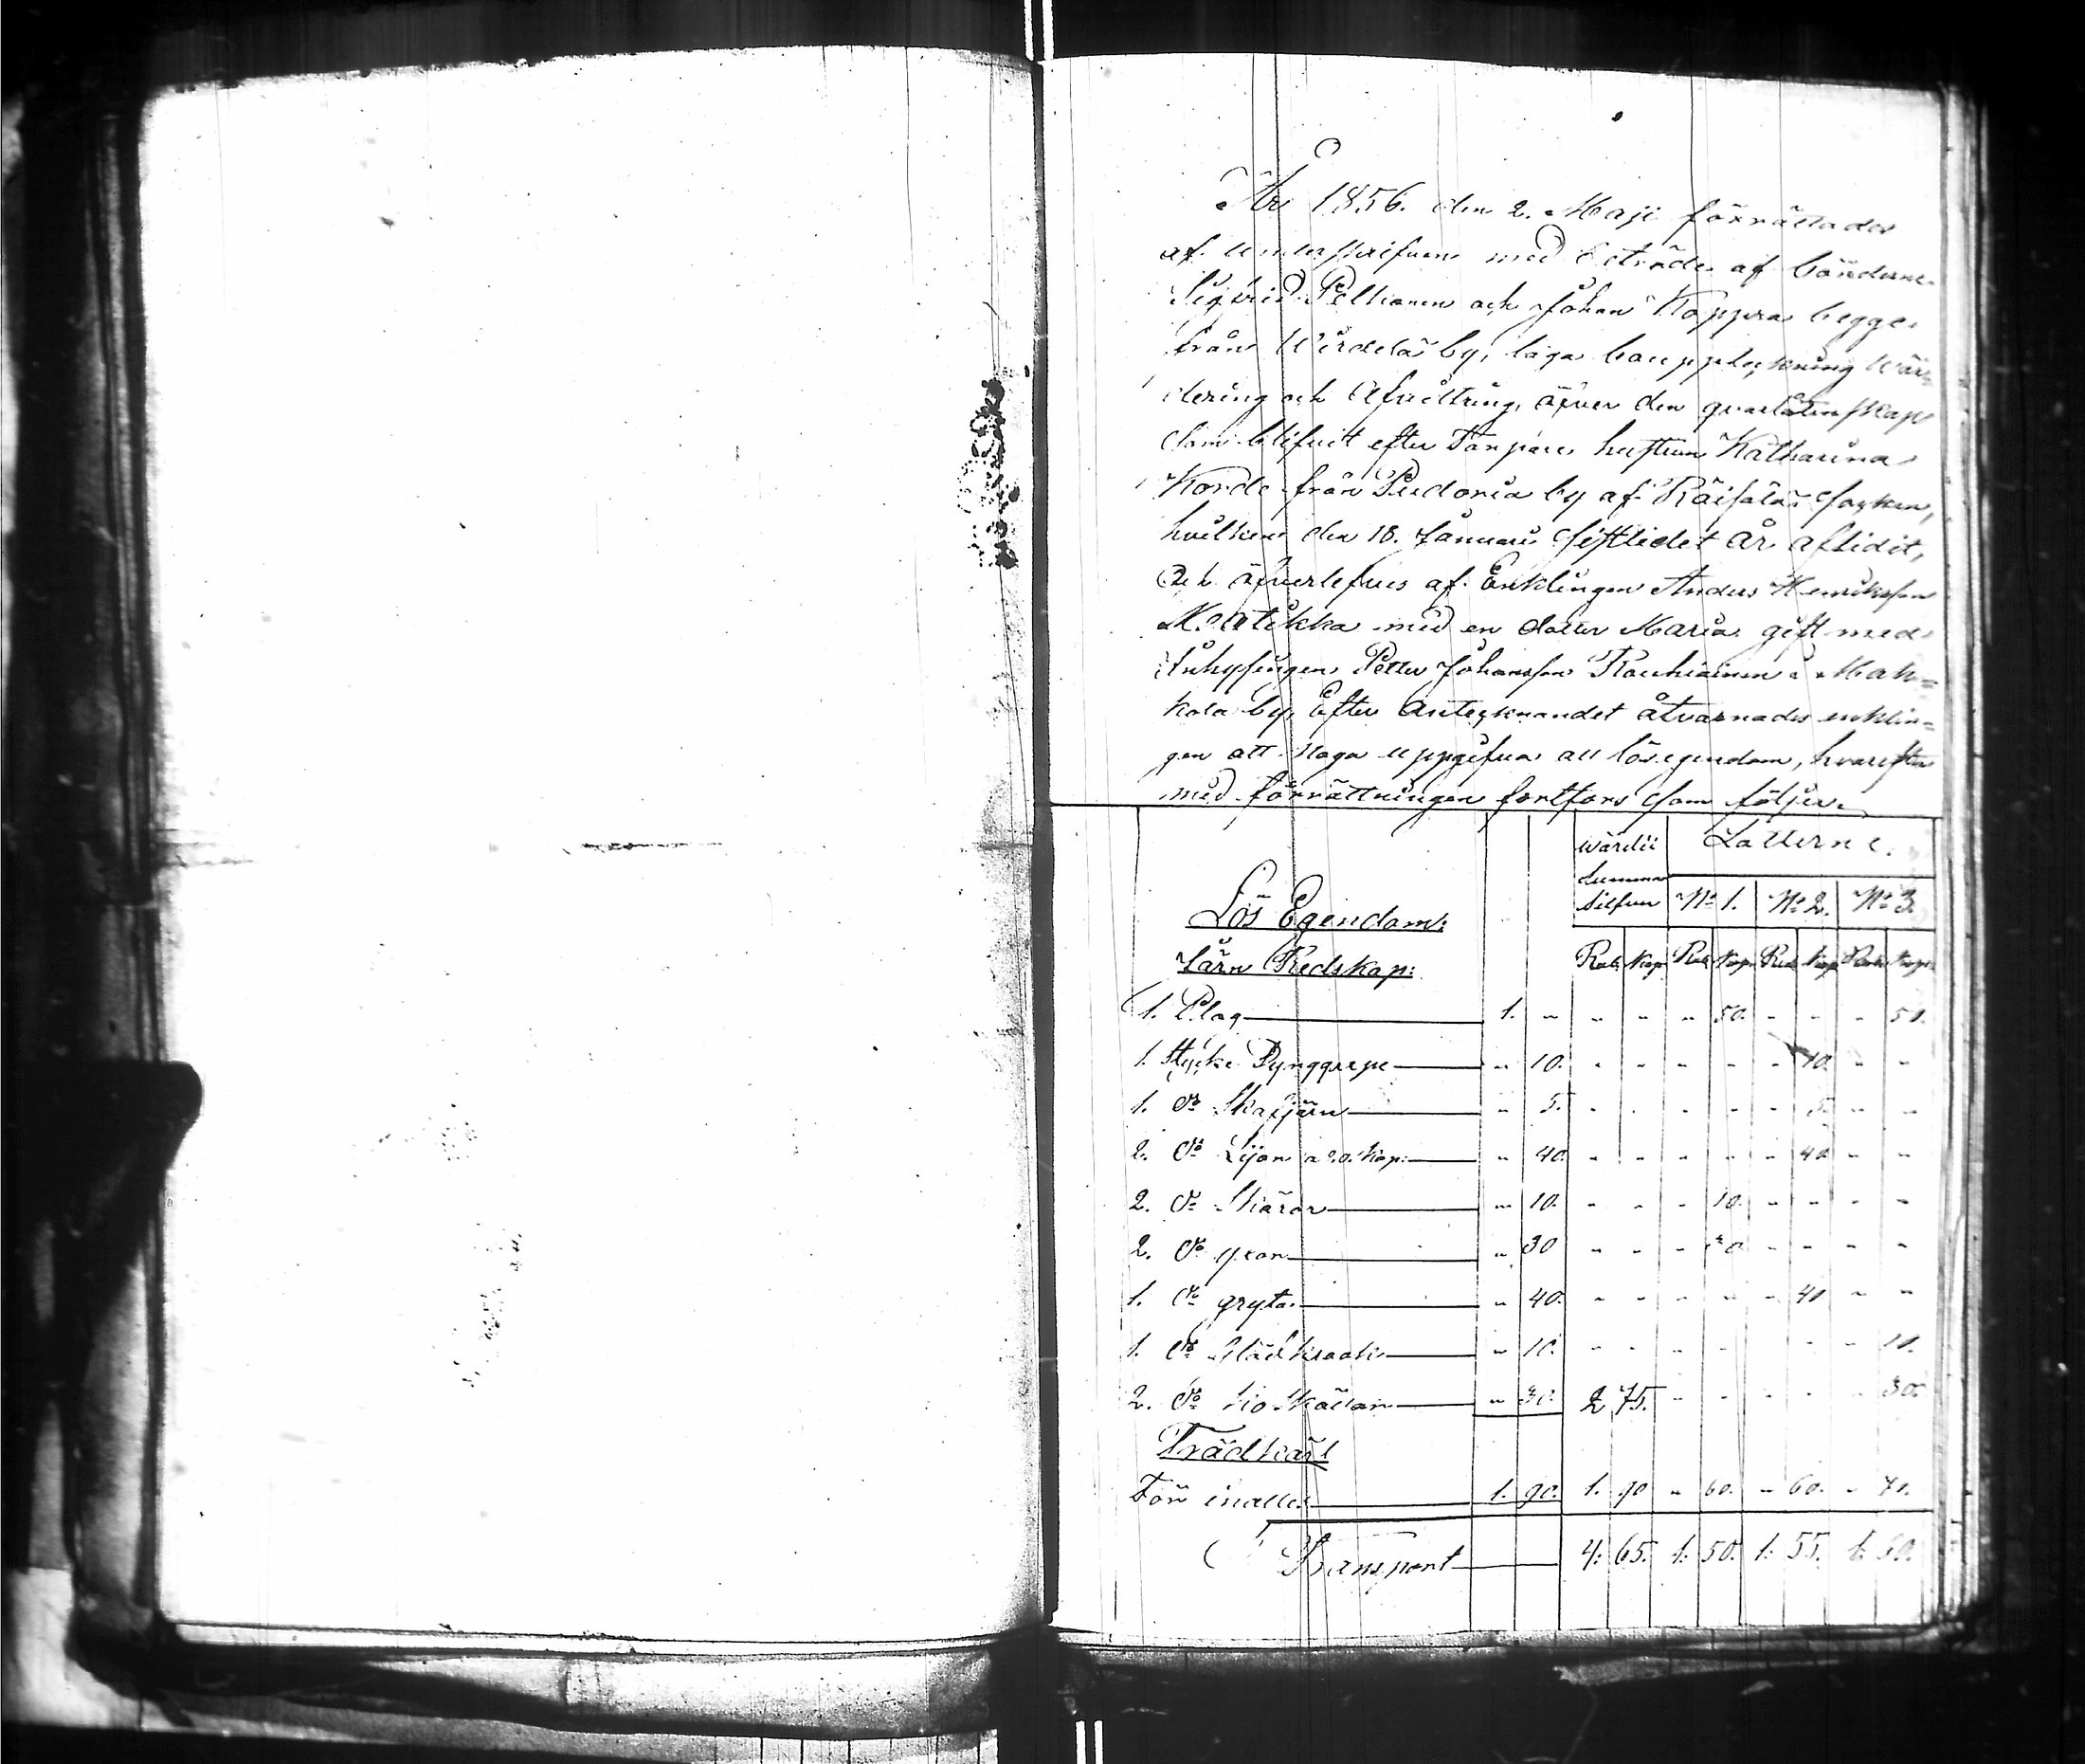 År 1856. den 2. Maji förrättades
af undaskrifven med biträde af bönderne
Sigfrid Peltonen och Johan Koppra begge
från Wirdelä by, laga bouppteckning wär-
dering och Afvittring öfver den qvarlåtenskap
som blifvit efter Torpare hustrun Katharina
Korde från Pudoria by af Räisälä socken,
hvilken den 18. Januari sistledet år aflidit,
och öfverlefves af Enklingen Anders Henriksson
med en dotter Maria gift med
Inhysingen Petter Johansson Rouhiainen i Mak=
kola by, Efter Antecknandet åtvarnades enklin=
gen att noga uppgifva all lösegendom, hvarefter
med förrättningen fortfors som följer.
wärdii Lotterne.
Summa
Silfver N:o 1. N:o 2. N:o 3.
Lös Egendom:
Järn Redskap: Rub Kop Rub Kop Rub Kop Rub Kop
1. Plog 1. " " " " 50. " " " 50.
1. Stycke Dynggrepe " 10. " " " " " 10. " "
1. d:o Skafjärn " 5. " " " " " 5. " "
2. d:o Lijor a 20. Kop: " 40. " " " " " 40 " "
2. d:o Skäror " 10. " " " 10. " " " "
2. d:o yxor " 30 " " " 30 " " " "
1. d:o gryta " 40. " " " " " 40 " "
1. d:o " 10. " " " " " " " 10.
2. d:o " 30. 2 75. " " " " " 30.
Trädkärl
För inalles 1. 90. 1. 90 " 60. " 60. " 70.
Transport 4. 65. 1. 50. 1. 55. 1. 60.